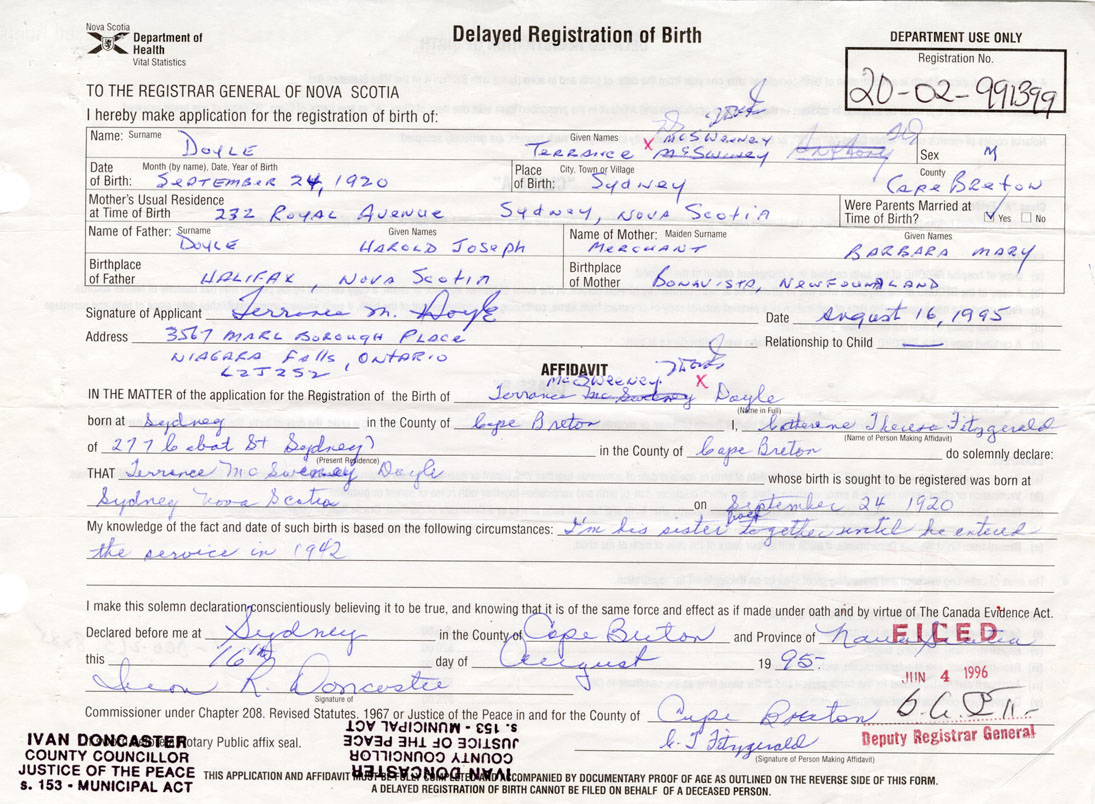 Nova Scotia
Department of
Health
Vital Statistics
Delayed Registration of Birth
DEPARTMENT USE ONLY
Registration No.
20-02-991399
TO THE REGISTRAR GENERAL OF NOVA SCOTIA
I hereby make application for the registration of birth of:
Name: Surname DOYLE Given Names TERRANCE x McSWEENEY McSWEENEY Anthony Sex M
Date of Birth: Month (by name), Date, Year of Birth SEPTEMBER 24, 1920 Place of Birth: City, Town or Village SYDNEY County CAPE BRETON
Mother's Usual Residence
at Time of Birth 232 ROYAL AVENUE SYDNEY, NOVA SCOTIA Were Parents Married at Time of Birth? Yes No
Name of Father: Surname DOYLE Given Names HAROLD JOSEPH Name of Mother: Maiden Surname MERCHANT Given Names BARBARA MARY
Birthplace of Father HALIFAX, NOVA SCOTIA Birthplace of Mother BONAVISTA, NEWFOUNDLAND
Signature of Applicant Terrance M. Doyle Date August 16, 1995
Address 3567 MARLBOROUGH PLACE Relationship to Child
NIAGARA FALLS, ONTARIO
L2J2S2
AFFIDAVIT
McSWEENEY x
IN THE MATTER of the application for the Registration of the Birth of Terrance Doyle
(Name in Full)
born at Sydney in the County of Cape Breton I, Catherine Theresa Fitzgerald
(Name of Person Making Affidavit)
of 277 Cabot St Sydney in the County of Cape Breton do solemnly declare:
(Present Residence)
THAT Terrance McSweeney Doyle whose birth is sought to be registered was born at
Sydney Nova Scotia on September 24 1920
My knowledge of the fact and date of such birth is based on the following circumstances: I'm his sister together until he entered
the service in 1942
I make this solemn declaration conscientiously believing it to be true, and knowing that it is of the same force and effect as if made under oath and by virtue of The Canada Evidence Act.
Declared before me at Sydney in the County of Cape Breton and Province of Nova Scotia
FILED
this 16th day of August 1995.
JUN 4 1996
Ivan R. Doncaster
Signature of
Commissioner under Chapter 208. Revised Statutes. 1967 or Justice of the Peace in and for the County of Cape Breton
Deputy Registrar General
Notary Public affix seal.
C. T Fitzgerald
(Signature of Person Making Affidavit)
IVAN DONCASTER
COUNTY COUNCILLOR
JUSTICE OF THE PEACE
s. 153 - MUNICIPAL ACT
IVAN DONCASTER
COUNTY COUNCILLOR
JUSTICE OF THE PEACE
s. 153 - MUNICIPAL ACT
THIS APPLICATION AND AFFIDAVIT MUST BE FULLY COMPLETED AND ACCOMPANIED BY DOCUMENTARY PROOF OF AGE AS OUTLINED ON THE REVERSE SIDE OF THIS FORM.
A DELAYED REGISTRATION OF BIRTH CANNOT BE FILED ON BEHALF OF A DECEASED PERSON.